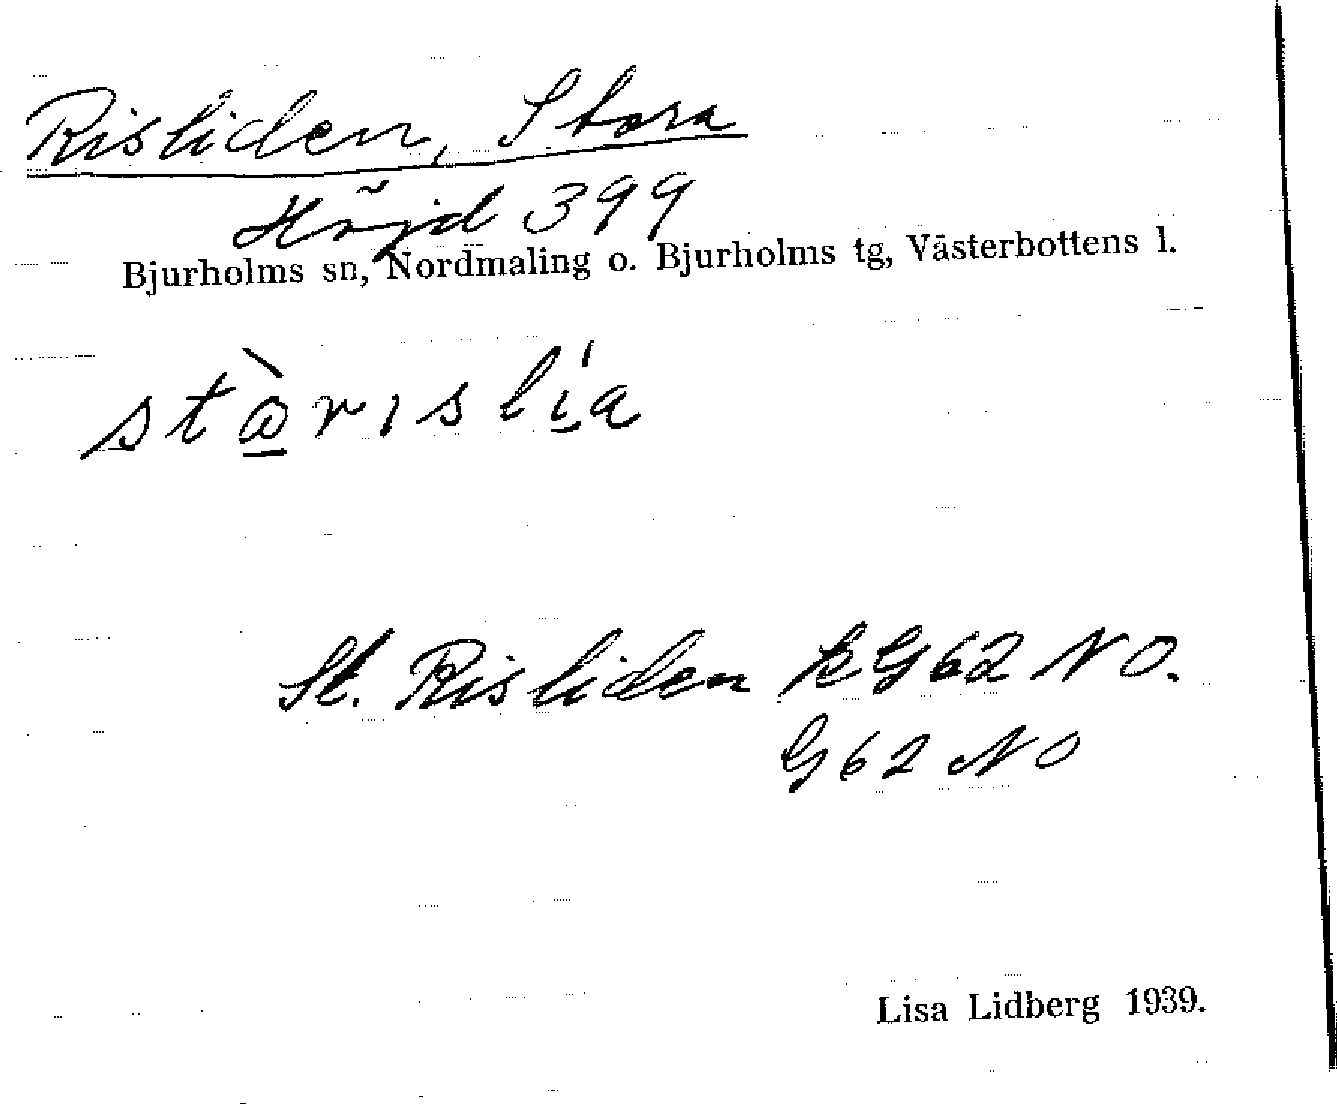 Risliden, Stora
Höjd 399
Bjurholms sn, Nordmaling o. Bjurholms tg, Västerbottens l.
St. Risliden k G62 NO.
G62 NO
Lisa Lidberg 1939.